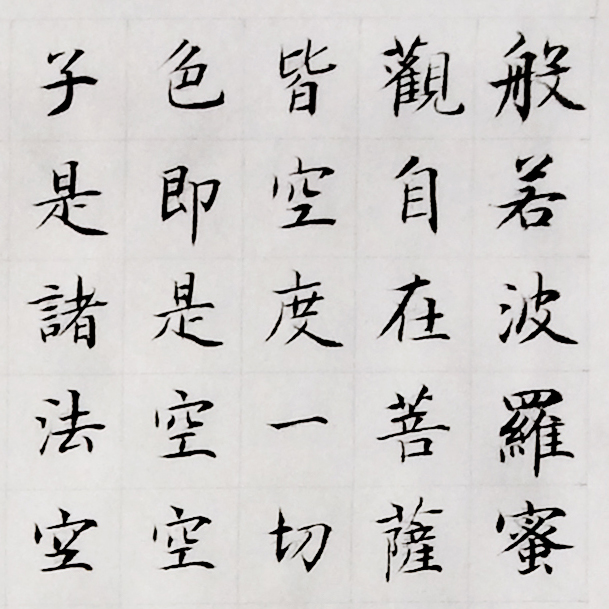 般若波羅蜜
觀自在菩薩
皆空度一切
色即是空空
子是諸法空